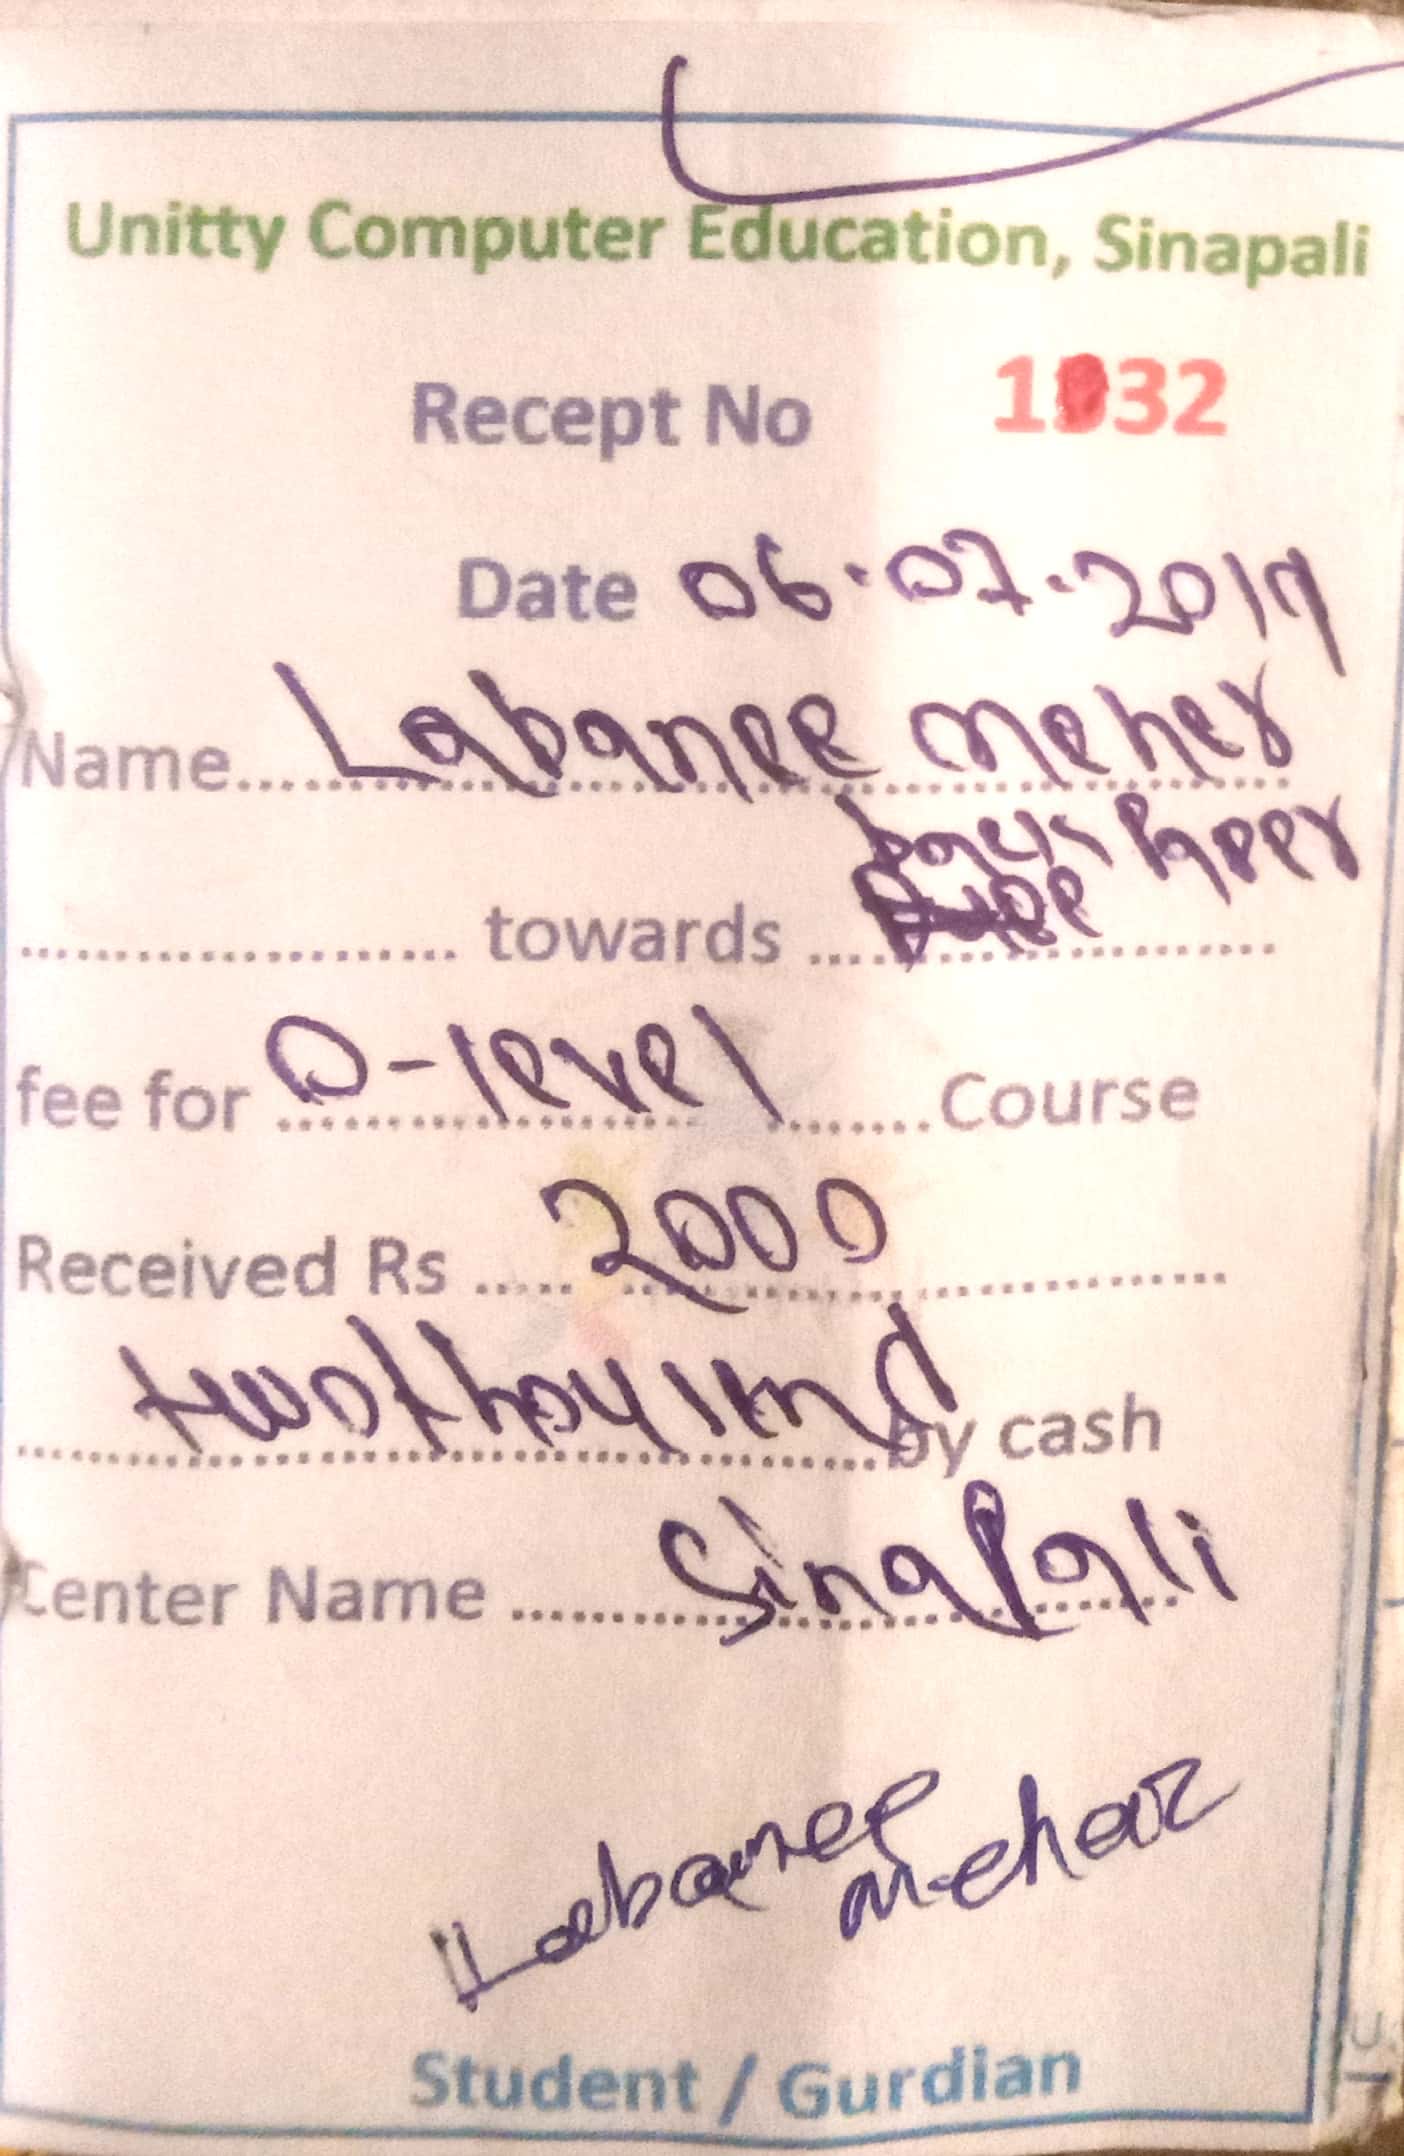 Unitty Computer Education, Sinapali
Recept No
Date 06.07.2019
Name Labanee meher
back paper
towards
fee for O-level Course
Received Rs 2000
two thousand by cash
Center Name Sinapali
Labanee
Meher
Student / Gurdian